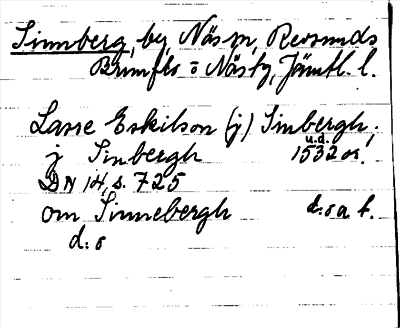 Sinnberg, by, Näs sn, Revsunds
Brunflo o Näs tg, Jämtl. l.
Lasse Eskilson (j) Sinbergh,
j Sinbergh u.d. 1532 or.
DN 14, s. 725
om Sinnebergh d:o a. f.
d:o